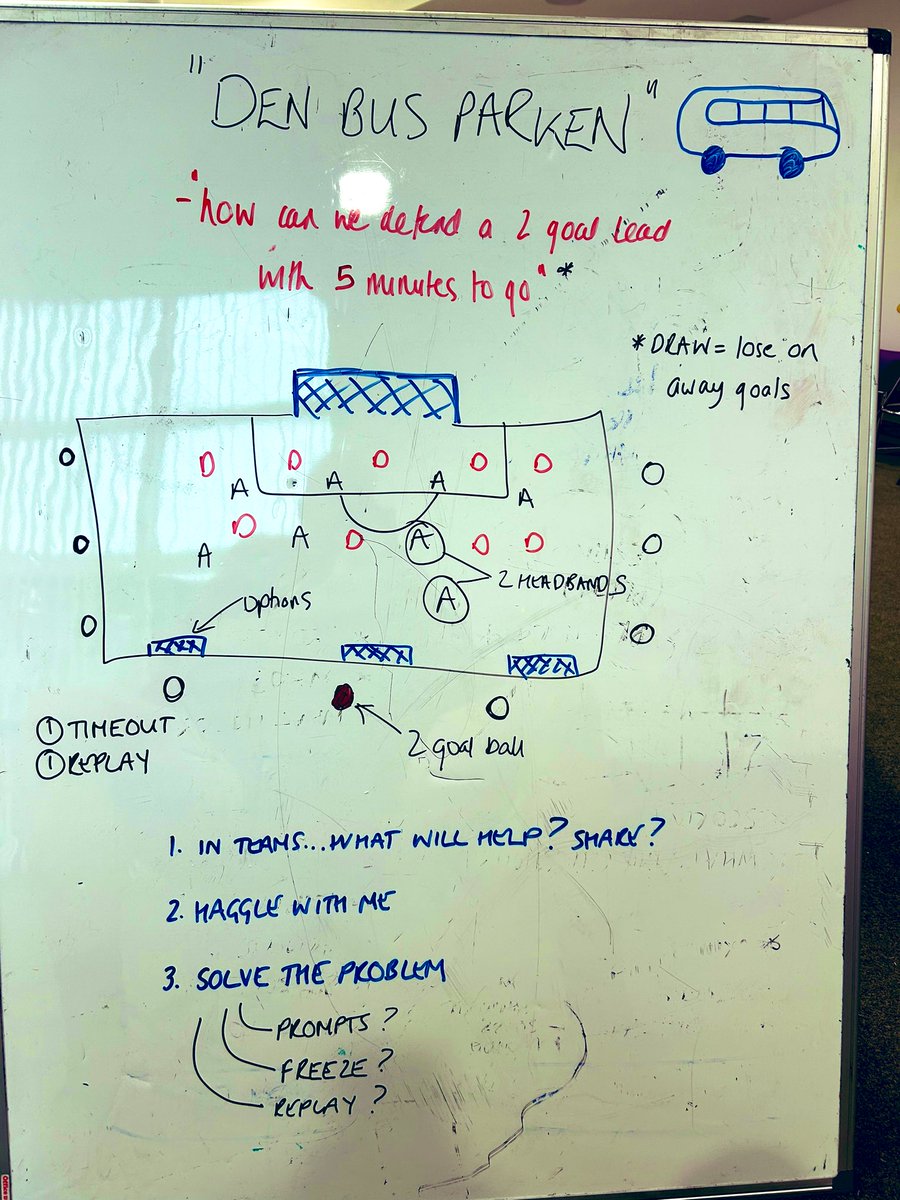 "DEN BUS PARKEN"
- "how can we defend a 2 goal lead
with 5 minutes to go" *
*DRAW = lose on
away goals
D D D D D
A A A A
D A A D A D D
2 HEADBANDS
A
options
① TIMEOUT
① REPLAY
2 goal ball
1. IN TEAMS...WHAT WILL HELP? SHARE?
2. HAGGLE WITH ME
3. SOLVE THE PROBLEM
PROMPTS?
FREEZE?
REPLAY?